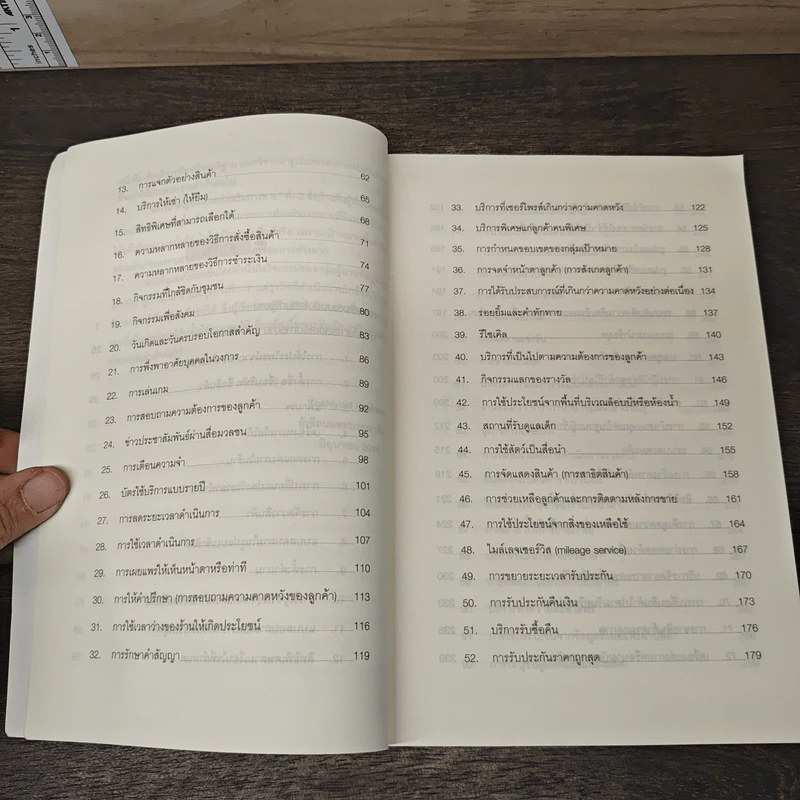 13. การแจกตัวอย่างสินค้า 62
14. บริการให้เช่า (ให้ยืม) 65
15. สิทธิพิเศษที่สามารถเลือกได้ 68
16. ความหลากหลายของวิธีการสั่งซื้อสินค้า 71
17. ความหลากหลายของวิธีการชำระเงิน 74
18. กิจกรรมที่ใกล้ชิดกับชุมชน 77
19. กิจกรรมเพื่อสังคม 80
20. วันเกิดและวันครบรอบโอกาสสำคัญ 83
21. การพึ่งพาอาศัยบุคคลในวงการ 86
22. การเล่นเกม 89
23. การสอบถามความต้องการของลูกค้า 92
24. ข่าวประชาสัมพันธ์ผ่านสื่อมวลชน 95
25. การเตือนความจำ 98
26. บัตรใช้บริการแบบรายปี 101
27. การลดระยะเวลาดำเนินการ 104
28. การใช้เวลาดำเนินการ 107
29. การเผยแพร่ให้เห็นหน้าตาหรือท่าที 110
30. การให้คำปรึกษา (การสอบถามความคาดหวังของลูกค้า) 113
31. การใช้เวลาว่างของร้านให้เกิดประโยชน์ 116
32. การรักษาคำสัญญา 119
33. บริการที่เซอร์ไพรส์เกินกว่าความคาดหวัง 122
34. บริการพิเศษแก่ลูกค้าคนพิเศษ 125
35. การกำหนดขอบเขตของกลุ่มเป้าหมาย 128
36. การจดจำหน้าตาลูกค้า (การสังเกตลูกค้า) 131
37. การได้รับประสบการณ์ที่เกินกว่าความคาดหวังอย่างต่อเนื่อง 134
38. รอยยิ้มและคำทักทาย 137
39. รีไซเคิล 140
40. บริการที่เป็นไปตามความต้องการของลูกค้า 143
41. กิจกรรมแลกของรางวัล 146
42. การใช้ประโยชน์จากพื้นที่บริเวณล็อบบี้หรือห้องน้ำ 149
43. สถานที่รับดูแลเด็ก 152
44. การใช้สัตว์เป็นสื่อนำ 155
45. การจัดแสดงสินค้า (การสาธิตสินค้า) 158
46. การช่วยเหลือลูกค้าและการติดตามหลังการขาย 161
47. การใช้ประโยชน์จากสิ่งของเหลือใช้ 164
48. ไมล์เลจเซอร์วิส (mileage service) 167
49. การขยายระยะเวลารับประกัน 170
50. การรับประกันคืนเงิน 173
51. บริการรับซื้อคืน 176
52. การรับประกันราคาถูกสุด 179